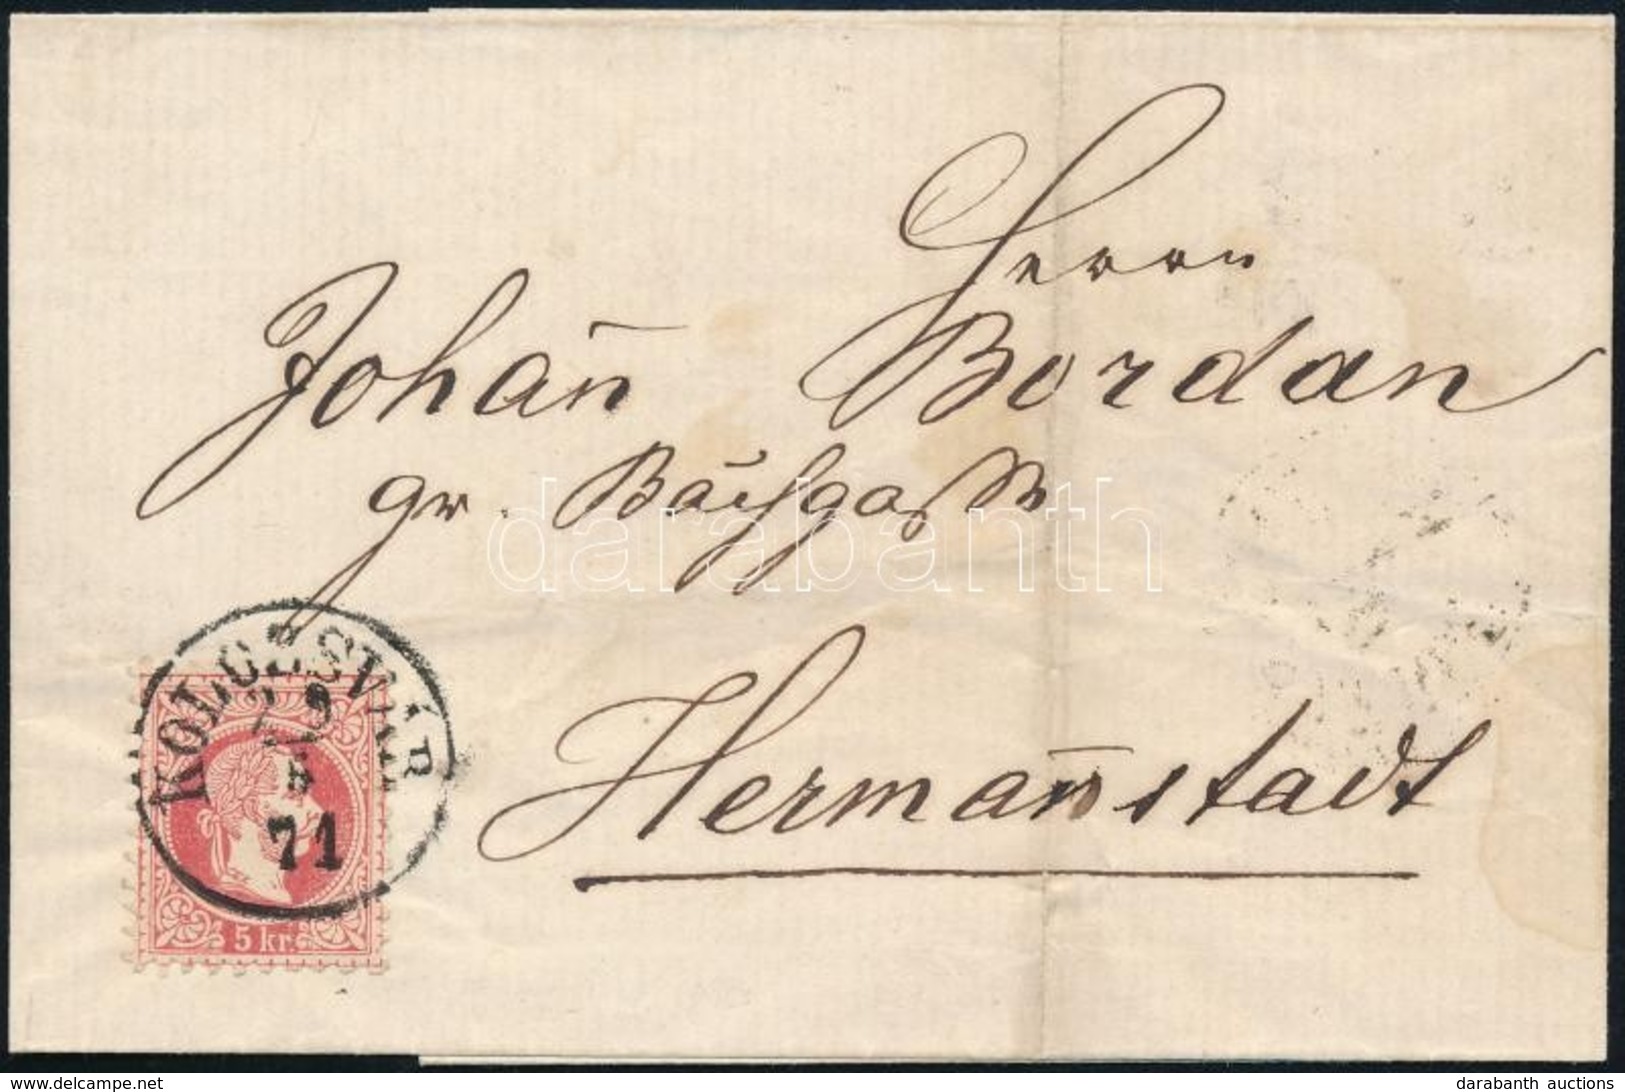 Herrn
Johañ Bordan
gr. Bachgasse
Hermañstadt
KOLOZSVÁR
71
5 kr.
darabanth
www.delcampe.net
darabanth auctions